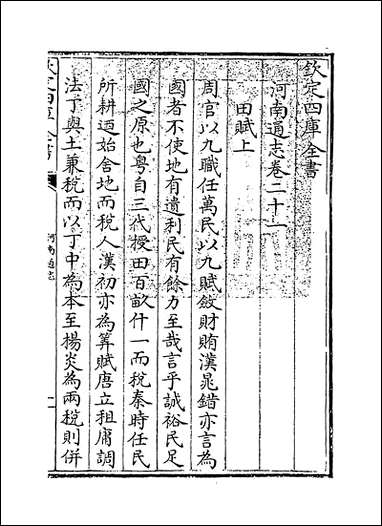 欽定四庫全書
河南通志卷二十一
田賦上
周官以九職任萬民以九賦斂財賄漢晁錯亦言為
國者不使地有遺利民有餘力至哉言乎誠裕民足
國之原也粵自三代授田百畝什一而稅秦時任民
所耕迺始舍地而稅人漢初亦為筭賦唐立租庸調
法丁與土兼稅而以丁中為本至楊炎為兩稅則併
欽定四庫全書
河南通志